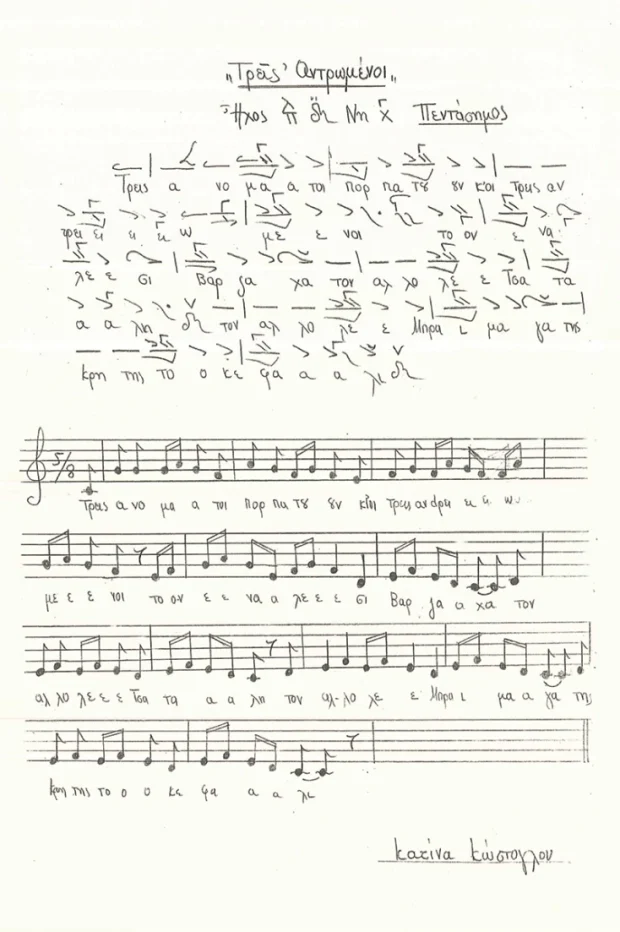 „Τρεῖς Ἀντρωμένοι„
Ἦχος Νη Πεντάσημος
Τρεις α νο μα α τοι πορ πα του ουν και τρεις αν
τρει ει ει ω με ε νοι το ον ε να
λε ε σι Βαρ δα χα τον αλ λο λε ε Τσα τα
α α λη τον αλ λο λε ε Μπρα ι μα γα της
κρη της το ο κε φα α α λι
5/8
Τρεις α νο μα α τοι πορ πα του ουν και τρεις αν ω
με ε ε νοι το ον ε ε να α λε ε ε σι Βαρ δα α χα τον
αλ λο λε ε ε Τσα τα α α λη τον αλ-λο λε ε Μπρα ι μα α γα της
κρη της το ο ο κε φα α α λι
Κατίνα Κώστογλου